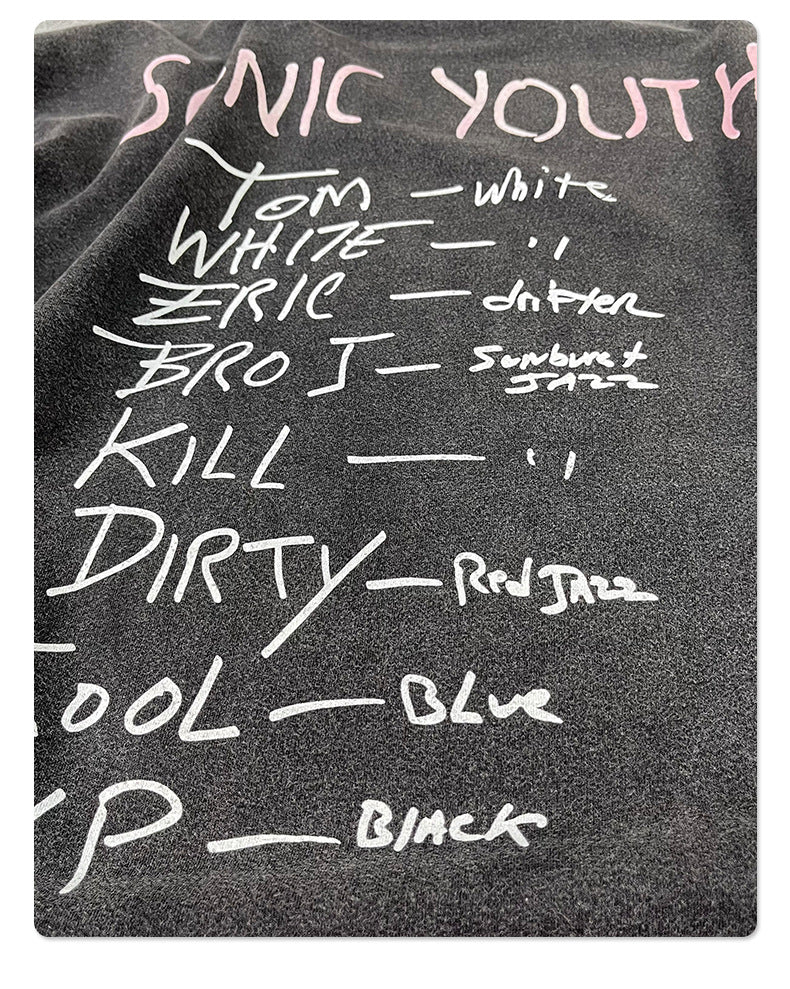 SONIC YOUTH
TOM — white
WHITE — ''
ERIC — drifter
BRO J — Sunburst
JAZZ
KILL — ''
DIRTY — Red JAZZ
TOOL — BLue
P — BlACK